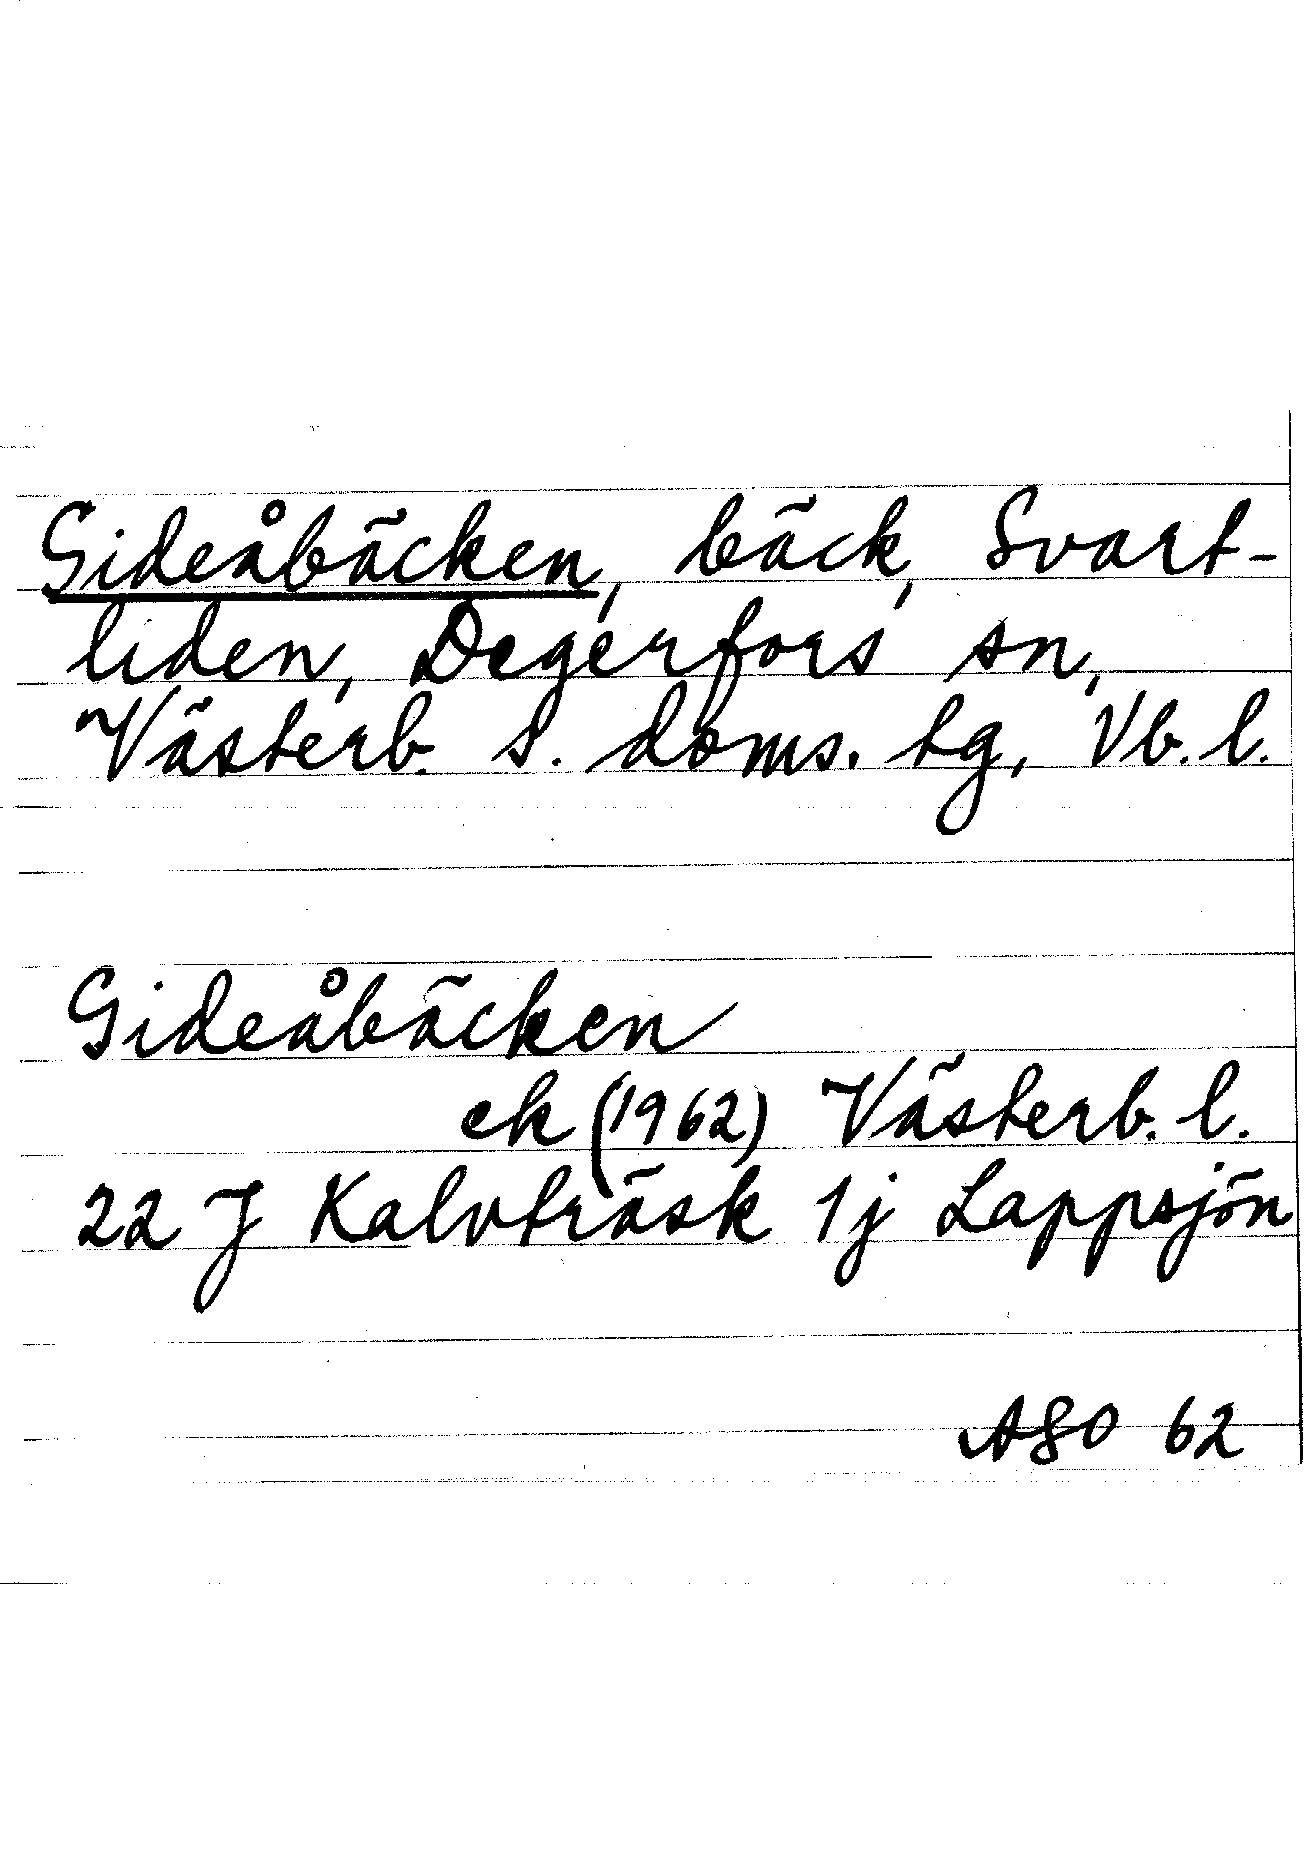 Gideåbäcken, bäck, Svart-
liden, Degerfors sn,
Västerb. s. doms. tg, Vb. l.
Gideåbäcken
ek (1962) Västerb. l.
22 J Kalvträsk 1j Lappsjön
ASO 62